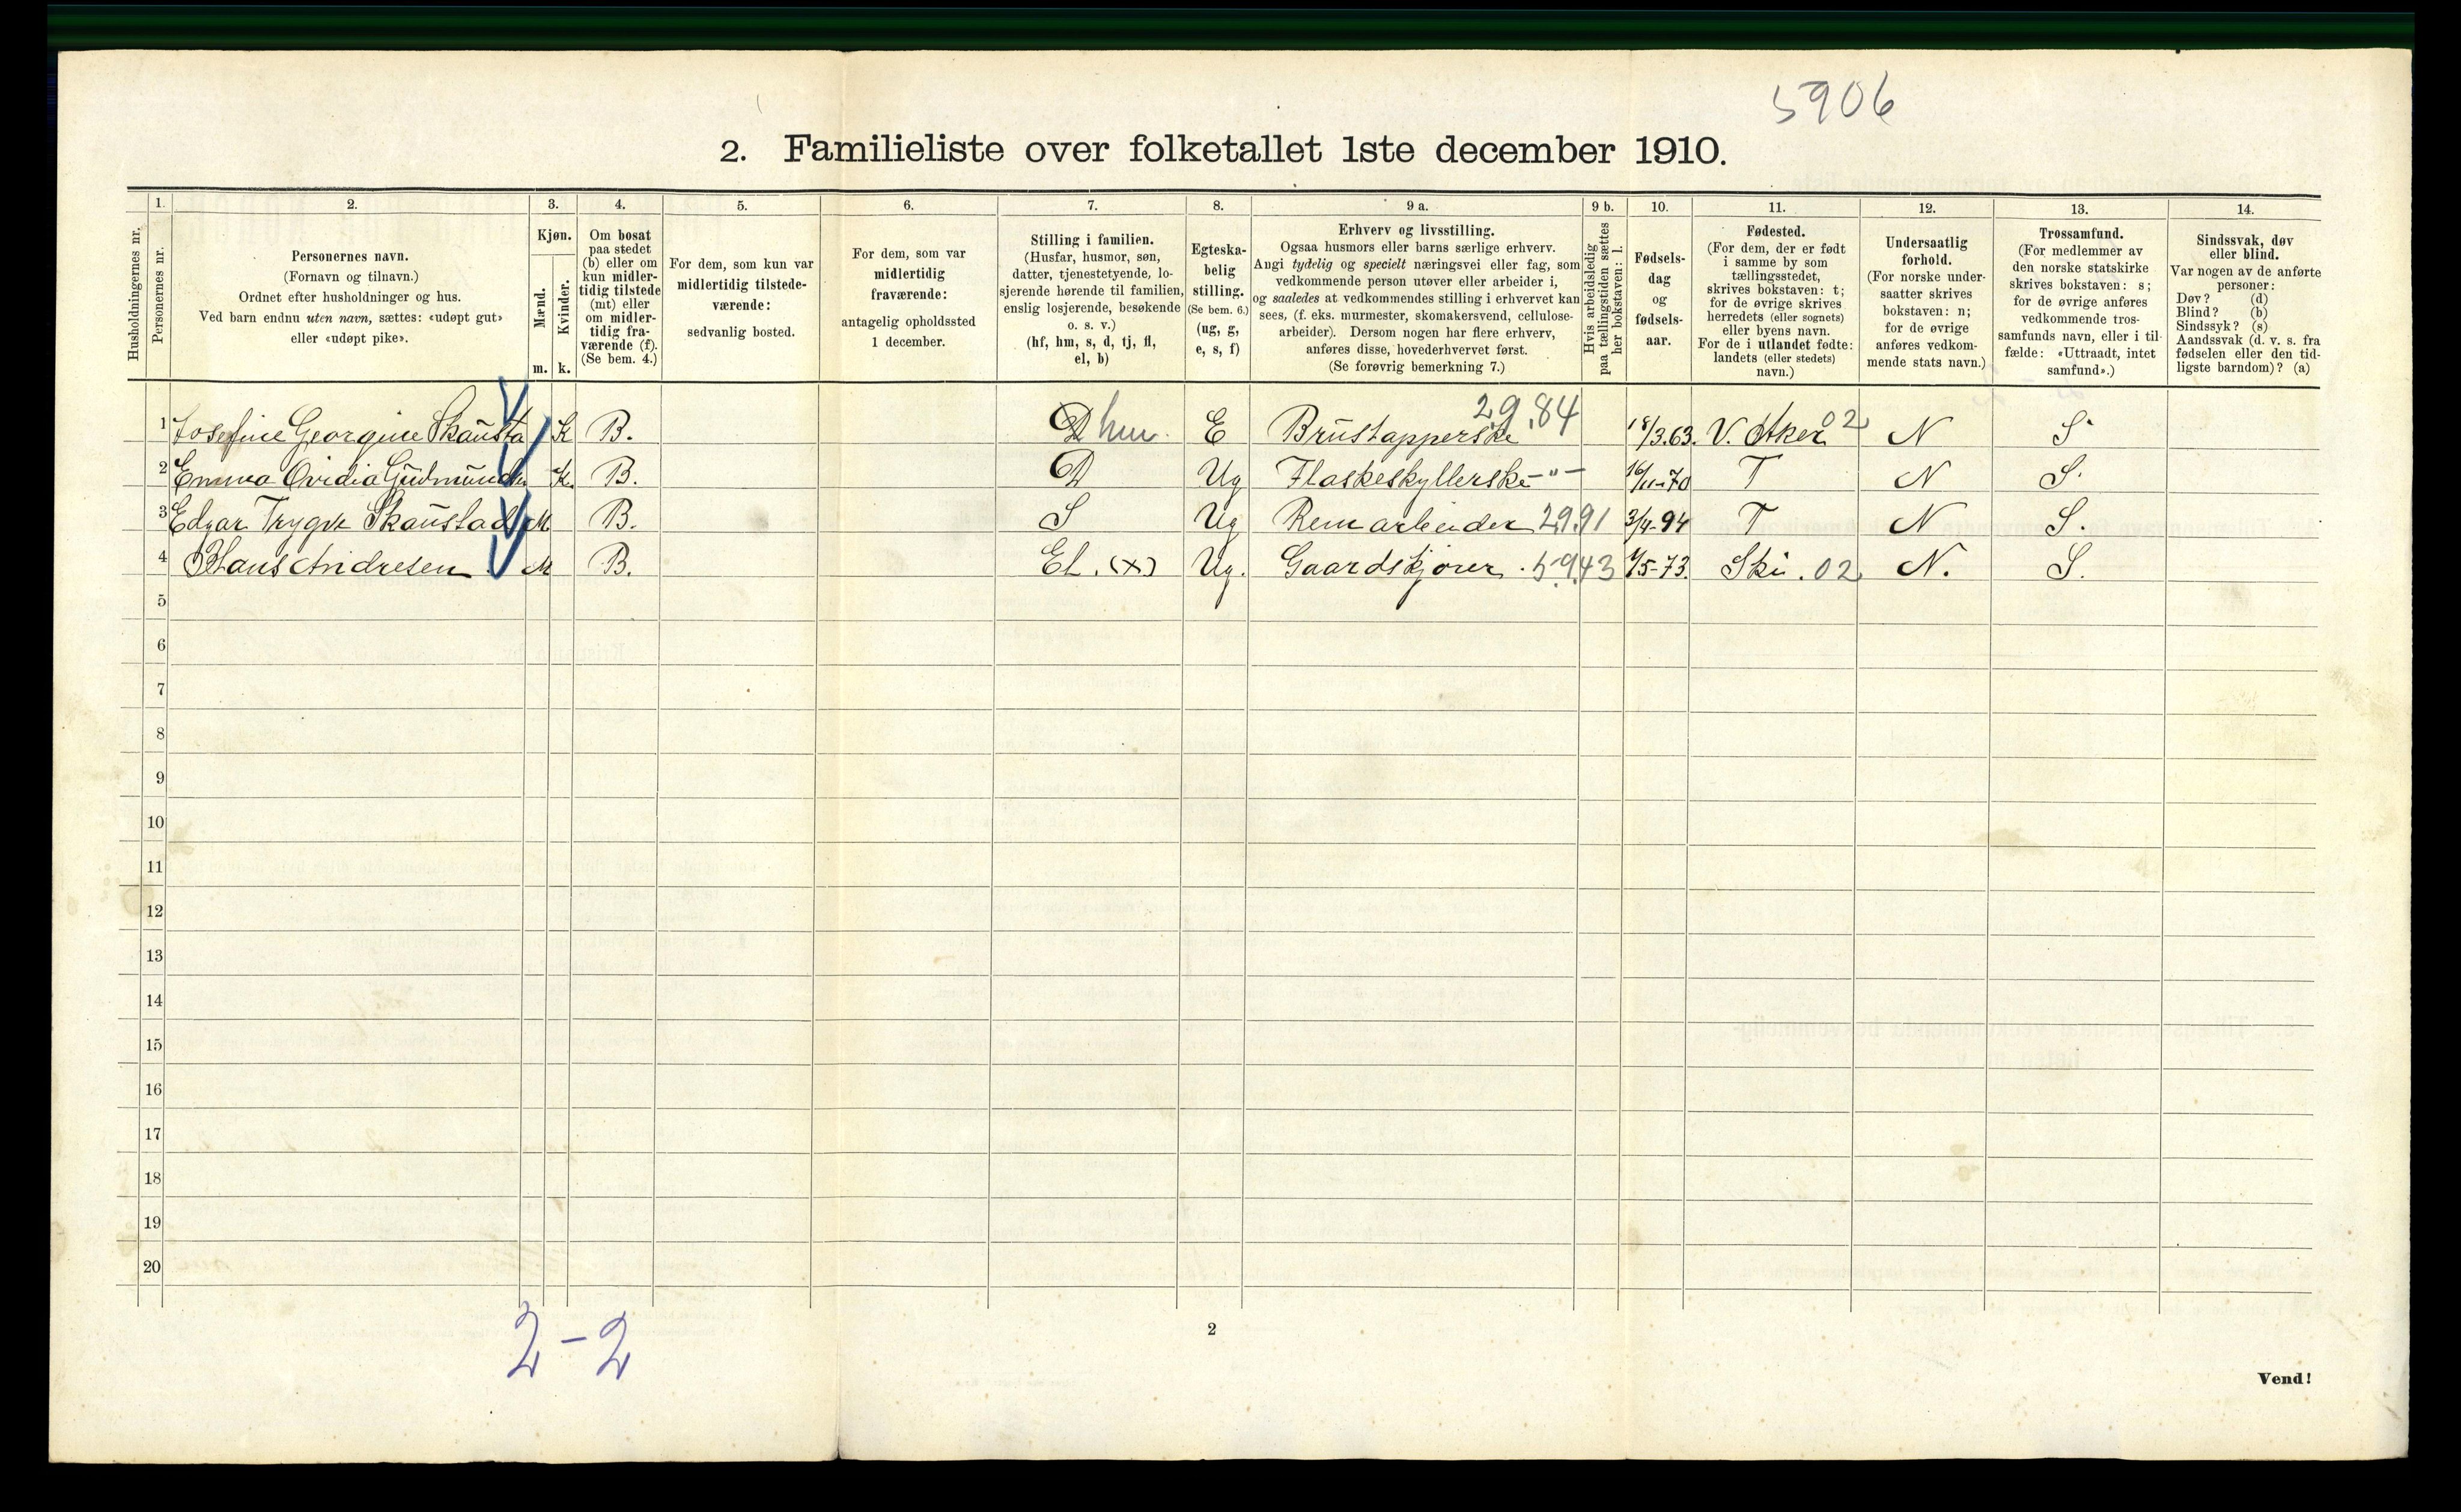 5906
2. Familieliste over folketallet 1ste december 1910.
Husholdningernes nr.
1.
Personernes nr.
2.
Personernes navn.
(Fornavn og tilnavn.)
Ordnet efter husholdninger og hus.
Ved barn endnu uten navn, sættes: «udøpt gut»
eller «udøpt pike».
3.
Kjøn.
Mænd.
Kvinder.
m. k.
4.
Om bosat
paa stedet
(b) eller om
kun midler-
tidig tilstede
(mt) eller
om midler-
tidig fra-
værende (f).
(Se bem. 4.)
5.
For dem, som kun var
midlertidig tilstede-
værende:
sedvanlig bosted.
6.
For dem, som var
midlertidig
fraværende:
antagelig opholdssted
1 december.
7.
Stilling i familien.
(Husfar, husmor, søn,
datter, tjenestetyende, lo-
sjerende hørende til familien,
enslig losjerende, besøkende
o. s. v.)
(hf, hm, s, d, tj, fl,
el, b)
8.
Egteska-
belig
stilling.
(Se bem. 6.)
(ug, g,
e, s, f)
9 a.
Erhverv og livsstilling.
Ogsaa husmors eller barns særlige erhverv.
Angi tydelig og specielt næringsvei eller fag, som
vedkommende person utøver eller arbeider i,
og saaledes at vedkommendes stilling i erhvervet kan
sees, (f. eks. murmester, skomakersvend, cellulose-
arbeider). Dersom nogen har flere erhverv,
anføres disse, hovederhvervet først.
(Se forøvrig bemerkning 7.)
9 b.
Hvis arbeidsledig
paa tællingstiden sættes
her bokstaven: l.
10.
Fødsels-
dag
og
fødsels-
aar.
11.
Fødested.
(For dem, der er født
i samme by som
tællingsstedet,
skrives bokstaven: t;
for de øvrige skrives
herredets (eller sognets)
eller byens navn.
For de i utlandet fødte:
landets (eller stedets)
navn.)
12.
Undersaatlig
forhold.
(For norske under-
saatter skrives
bokstaven: n;
for de øvrige
anføres vedkom-
mende stats navn.)
13.
Trossamfund.
(For medlemmer av
den norske statskirke
skrives bokstaven: s;
for de øvrige anføres
vedkommende tros-
samfunds navn, eller i til-
fælde: «Uttraadt, intet
samfund».)
14.
Sindssvak, døv
eller blind.
Var nogen av de anførte
personer:
Døv? (d)
Blind? (b)
Sindssyk? (s)
Aandssvak (d. v. s. fra
fødselen eller den tid-
ligste barndom)? (a)
1 Josefine Georgine Skausta K B. D hm. E Brustapperske 29.84 18/3.63. V. Aker 02 N S.
2 Emma Ovidia Gudmunds K. B. D Ug Flaskeskyllerske -"- 16/11-70 T N S.
3 Edgar Trygve Skaustad M B. S Ug Remarbeider 2991 3/4-94 T N S.
4 Hans Andresen M B. El. (x) Ug. Gaardskjører. 5943 1/5-73. Ski. 02 N. S.
5
6
7
8
9
10
11
12
13
14
15
16
17
18
19
20
2-2
2
Vend!